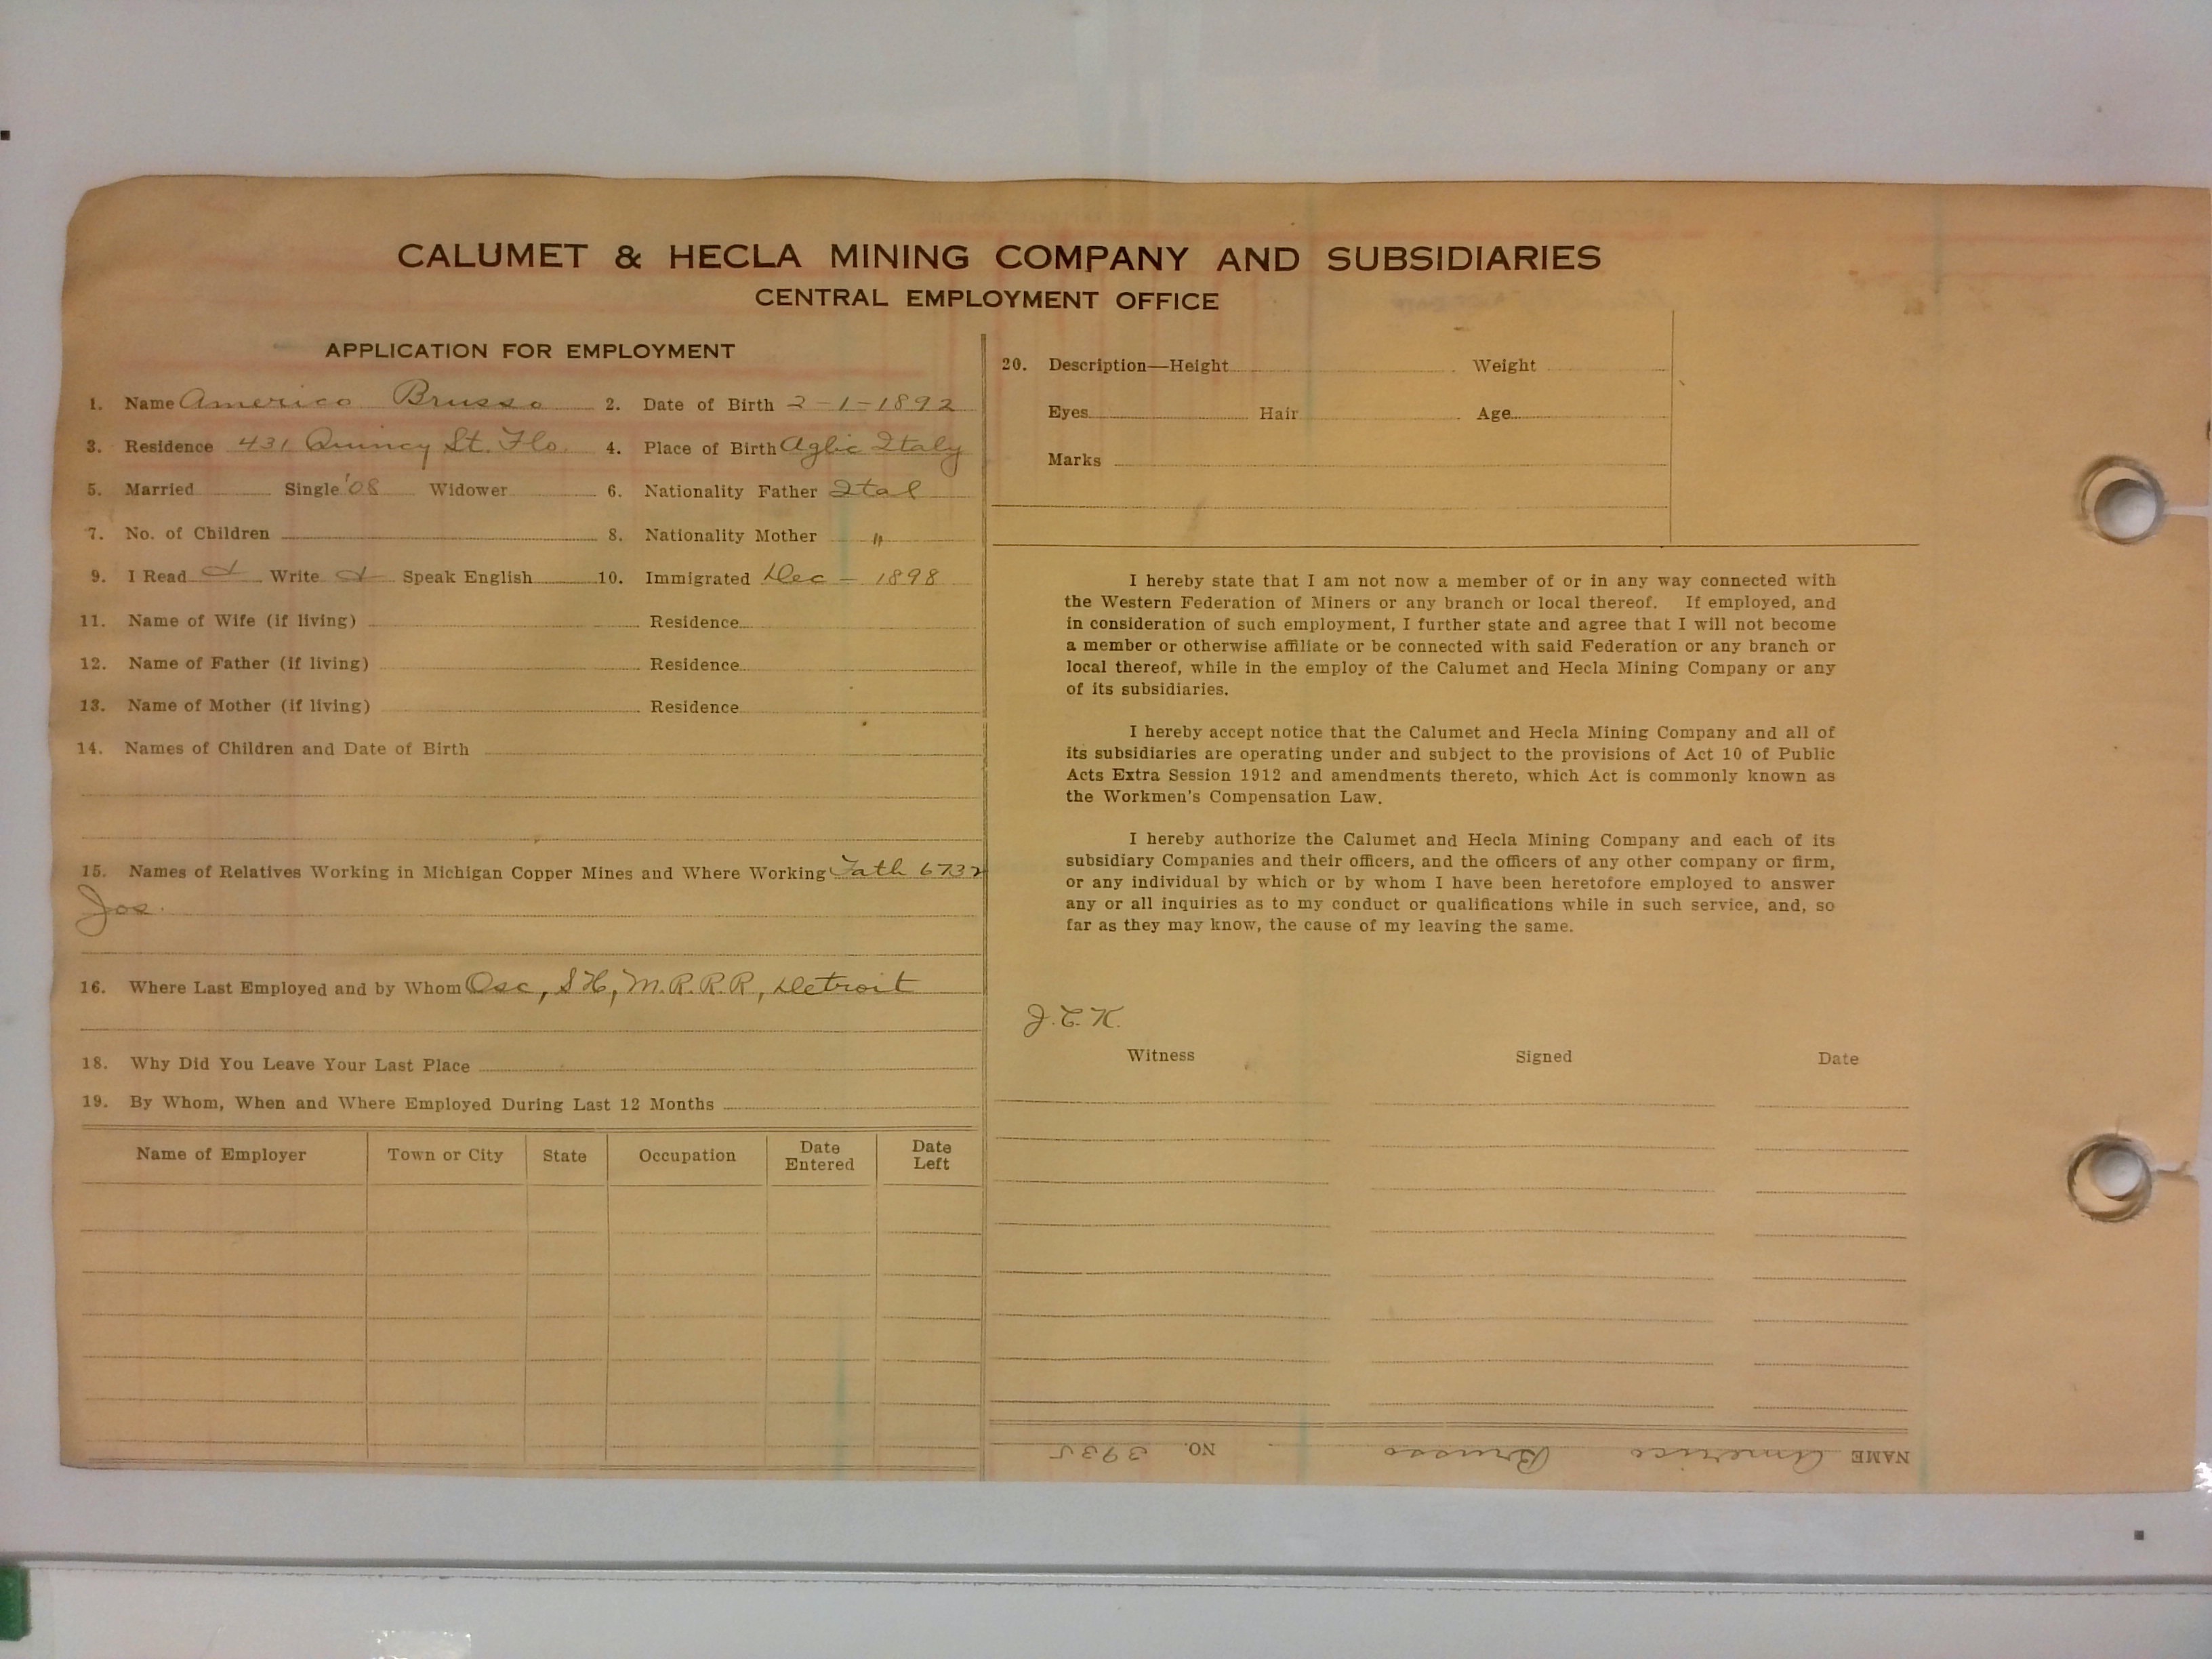 CALUMET & HECLA MINING COMPANY AND SUBSIDIARIES
CENTRAL EMPLOYMENT OFFICE
APPLICATION FOR EMPLOYMENT
1. Name Americo Brusso 2. Date of Birth 2-1-1892
3. Residence 431 Quincy St. Flo. 4. Place of Birth Aglie Italy
5. Married Single '08 Widower 6. Nationality Father Ital
7. No. of Children 8. Nationality Mother "
9. I Read Write Speak English 10. Immigrated Dec - 1898
11. Name of Wife (if living) Residence
12. Name of Father (if living) Residence
13. Name of Mother (if living) Residence
14. Names of Children and Date of Birth
15. Names of Relatives Working in Michigan Copper Mines and Where Working Fath 6732
Jos.
16. Where Last Employed and by Whom Osc, S H, M.R.R.R, Detroit
18. Why Did You Leave Your Last Place
19. By Whom, When and Where Employed During Last 12 Months
Name of Employer Town or City State Occupation Date Entered Date Left
20. Description—Height Weight
Eyes Hair Age
Marks
I hereby state that I am not now a member of or in any way connected with
the Western Federation of Miners or any branch or local thereof. If employed, and
in consideration of such employment, I further state and agree that I will not become
a member or otherwise affiliate or be connected with said Federation or any branch or
local thereof, while in the employ of the Calumet and Hecla Mining Company or any
of its subsidiaries.
I hereby accept notice that the Calumet and Hecla Mining Company and all of
its subsidiaries are operating under and subject to the provisions of Act 10 of Public
Acts Extra Session 1912 and amendments thereto, which Act is commonly known as
the Workmen's Compensation Law.
I hereby authorize the Calumet and Hecla Mining Company and each of its
subsidiary Companies and their officers, and the officers of any other company or firm,
or any individual by which or by whom I have been heretofore employed to answer
any or all inquiries as to my conduct or qualifications while in such service, and, so
far as they may know, the cause of my leaving the same.
J.C.K.
Witness Signed Date
NAME Americo Brusso NO. 3935